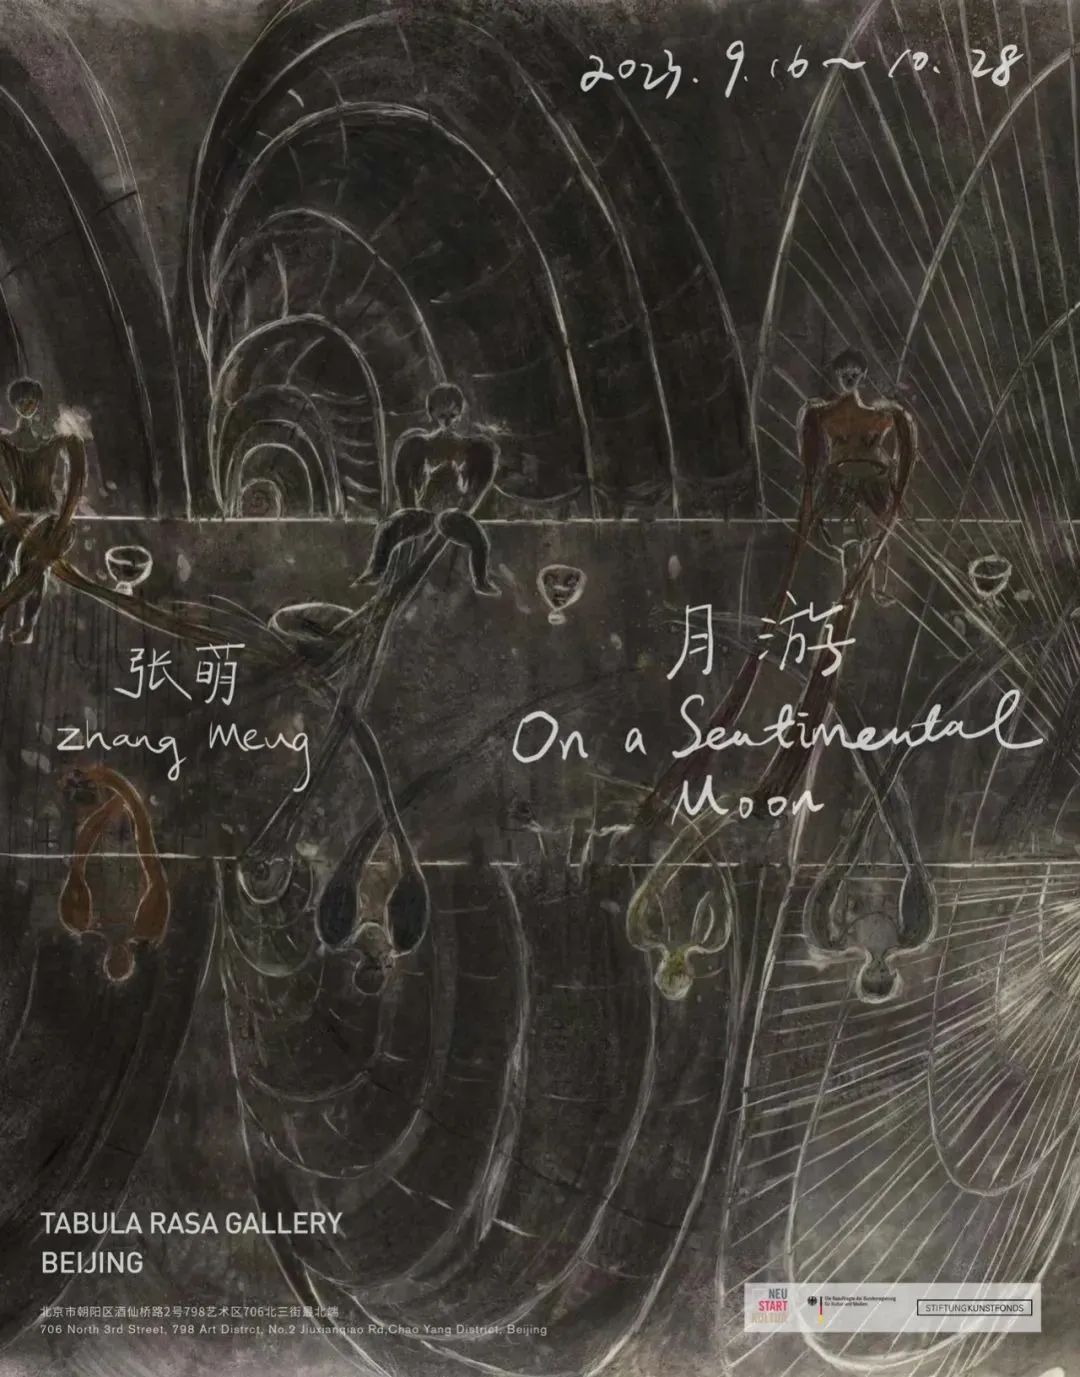 2023. 9. 16 ~ 10. 28
张萌
Zhang Meng
月游
On a Sentimental
Moon
TABULA RASA GALLERY
BEIJING
北京市朝阳区酒仙桥路2号798艺术区706北三街最北端
706 North 3rd Street, 798 Art Distrct, No.2 Jiuxianqiao Rd,Chao Yang District, Beijing
NEU
START
KULTUR
Die Beauftragte der Bundesregierung
für Kultur und Medien
STIFTUNGKUNSTFONDS